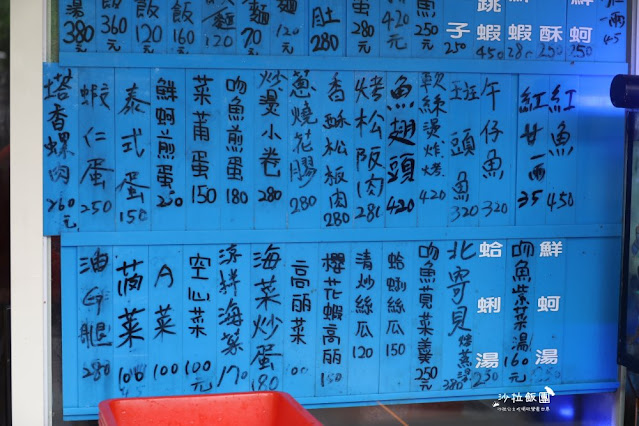 一兩 45
鮮蚵 250
酥
蝦
跳蝦 450
子 250
魚 250元
420元
蛋 280元
肚 280
麵 120
麵 70元
飯 160元
飯 120
飯 360元
湯 380元
紅魚 450
紅甘一兩 35
午仔魚 320
斑頭魚 320
軟絲燙炸烤 420
魚翅頭 420
烤松阪肉 280
香酥松板肉 280
蔥燒花膠 280
炒燙小卷 280
吻魚煎蛋 180
菜莆蛋 150
鮮蚵煎蛋 250
泰式蛋 150
蝦仁蛋 250
塔香螺肉 260元
鮮蚵湯
吻魚紫菜湯 160元
蛤蜊湯
北寄貝 380
吻魚莧菜羹 250元
蛤蜊絲瓜 150
清炒絲瓜 120
櫻花蝦高麗 150
高麗菜 100
海菜炒蛋 180
涼拌海菜 170
空心菜 100元
A菜 100
茼菜 100
油雞腿 280
沙拉飯團